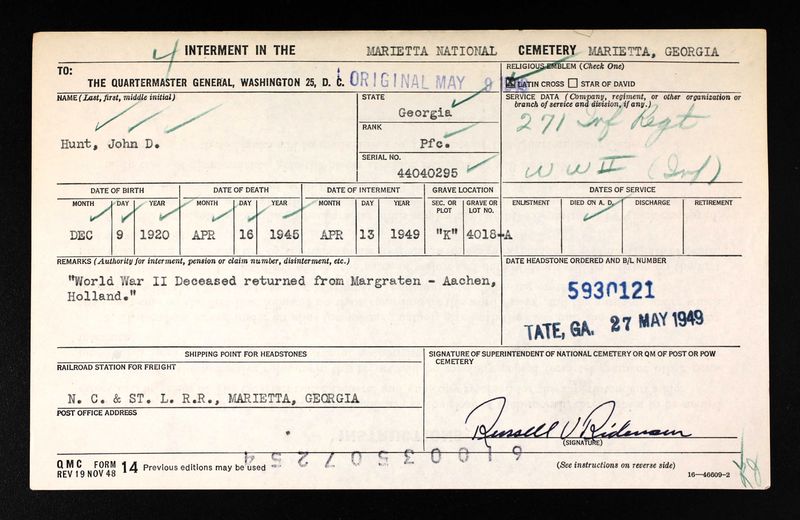 4 INTERMENT IN THE MARIETTA NATIONAL CEMETERY MARIETTA, GEORGIA
TO:
THE QUARTERMASTER GENERAL, WASHINGTON 25, D. C.
ORIGINAL MAY 9
RELIGIOUS EMBLEM (Check One)
LATIN CROSS STAR OF DAVID
NAME (Last, first, middle initial)
Hunt, John D.
STATE
Georgia
RANK
Pfc.
SERIAL NO.
44040295
SERVICE DATA (Company, regiment, or other organization or
branch of service and division, if any.)
271 Inf Regt
WW II (Inf)
DATE OF BIRTH DATE OF DEATH DATE OF INTERMENT GRAVE LOCATION DATES OF SERVICE
MONTH DAY YEAR MONTH DAY YEAR MONTH DAY YEAR SEC. OR PLOT GRAVE OR LOT NO. ENLISTMENT DIED ON A. D. DISCHARGE RETIREMENT
DEC 9 1920 APR 16 1945 APR 13 1949 "K" 4018-A
REMARKS (Authority for interment, pension or claim number, disinterment, etc.)
"World War II Deceased returned from Margraten - Aachen,
Holland."
DATE HEADSTONE ORDERED AND B/L NUMBER
5930121
TATE, GA. 27 MAY 1949
SHIPPING POINT FOR HEADSTONES
RAILROAD STATION FOR FREIGHT
N. C. & ST. L. R.R., MARIETTA, GEORGIA
POST OFFICE ADDRESS
SIGNATURE OF SUPERINTENDENT OF NATIONAL CEMETERY OR QM OF POST OR POW
CEMETERY
Russell V Ridenour
(SIGNATURE)
QMC FORM 14 Previous editions may be used
REV 19 NOV 48
61003507254
(See instructions on reverse side)
16—46609-2